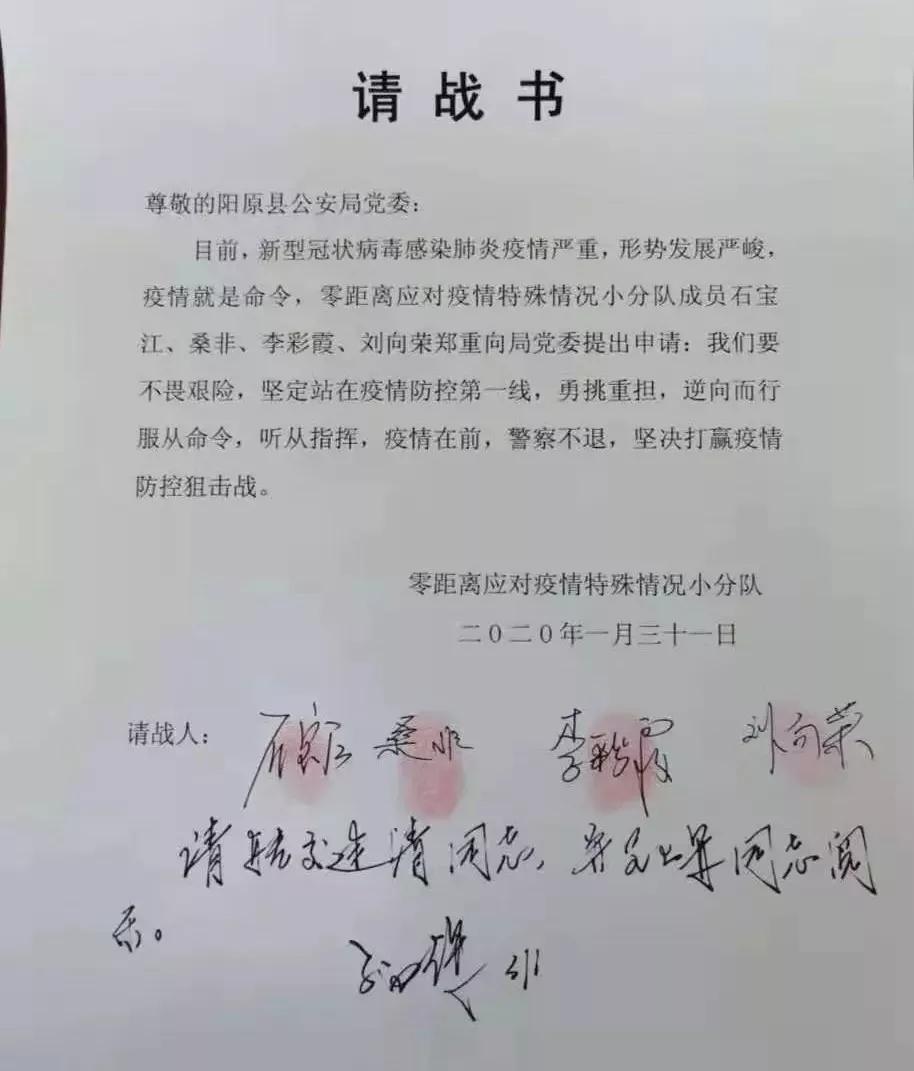 请战书
尊敬的阳原县公安局党委：
目前，新型冠状病毒感染肺炎疫情严重，形势发展严峻，
疫情就是命令，零距离应对疫情特殊情况小分队成员石宝
江、桑非、李彩霞、刘向荣郑重向局党委提出申请：我们要
不畏艰险，坚定站在疫情防控第一线，勇挑重担，逆向而行
服从命令，听从指挥，疫情在前，警察不退，坚决打赢疫情
防控狙击战。
零距离应对疫情特殊情况小分队
二〇二〇年一月三十一日
请战人： 石宝江 桑非 李彩霞 刘向荣
请转交连清同志、同志阅
示。